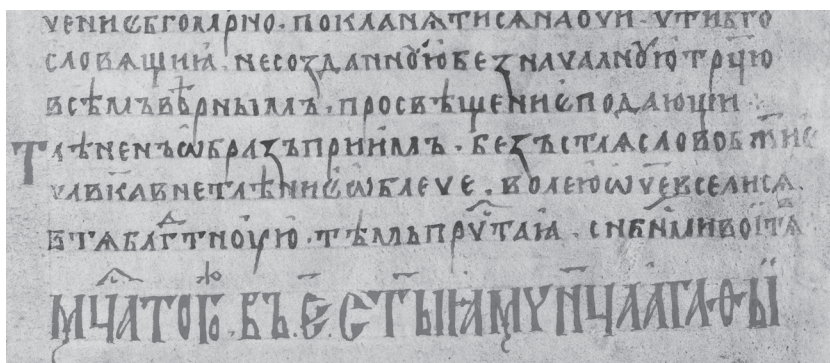 ѵениѥбг҃омѫрно · покланѧтисѧнаоучи · ѵтивг҃о
словѧщиꙗ · несозданноуюбезнаѵалноуютр҃цю
всѣмъвѣрнымъ · просвѣщениѥподающи ·
Тлѣненъѡбразъприимъ · безъстлѧсловобж҃иѥ
ѵлв҃кавнетлѣниѥѡблеѵе · волеюѡѵ҃евселисѧ ·
втѧблаг҃тноую · тѣмьпрѵ҃таꙗ · сиб҃нмивоїтѧ
мц҃атогож · въ · е҃ · ст҃ыꙗмѵн҃цаагаѳыї